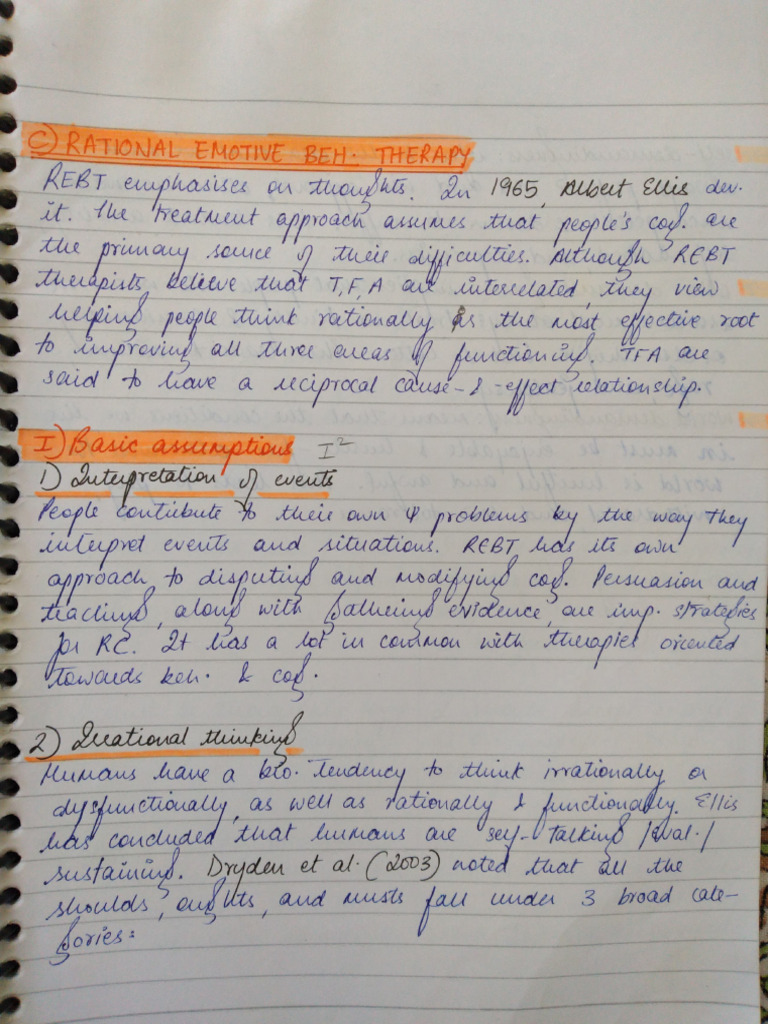 C) RATIONAL EMOTIVE BEH. THERAPY
REBT emphasises on thoughts. In 1965, Albert Ellis dev.
it. The treatment approach assumes that people's cog. are
the primary source of their difficulties. Although REBT
therapists believe that T, F, A are interrelated, they view
helping people think rationally as the most effective root
to improving all three areas of functioning. TFA are
said to have a reciprocal cause-&-effect relationship.
I) Basic assumptions I²
1) Interpretation of events
People contribute to their own ψ problems by the way they
interpret events and situations. REBT has its own
approach to disputing and modifying cog. Persuasion and
teaching, along with gathering evidence, are imp. strategies
for RC. It has a lot in common with therapies oriented
towards beh. & cog.
2) Irrational thinking
Humans have a bio. tendency to think irrationally or
dysfunctionally, as well as rationally & functionally. Ellis
has concluded that humans are self-talking/eval./
sustaining. Dryden et al. (2003) noted that all the
shoulds, oughts, and musts fall under 3 broad cate-
gories: